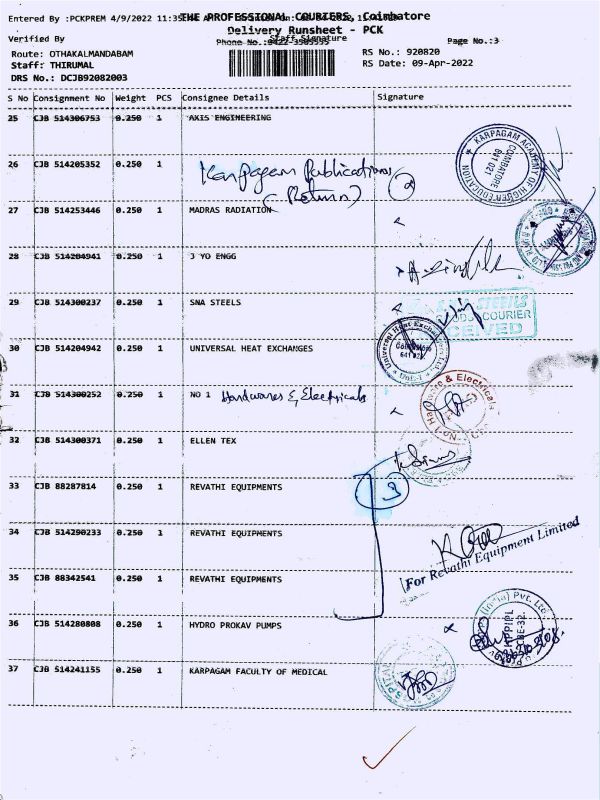 Entered By :PCKPREM 4/9/2022
THE PROFESSIONAL COURIERS, Coimbatore
Delivery Runsheet - PCK
Verified By
Staff Signature
Phone No.:0422-3505555
Page No.:3
Route: OTHAKALMANDABAM
RS No.: 920820
Staff: THIRUMAL
RS Date: 09-Apr-2022
DRS No.: DCJB92082003
S No Consignment No Weight PCS Consignee Details Signature
25 CJB 514306753 0.250 1 AXIS ENGINEERING
KARPAGAM ACADEMY OF HIGHER EDUCATION
COIMBATORE
641 021
26 CJB 514205352 0.250 1 Karpagam Publications
(Return) 2
27 CJB 514253446 0.250 1 MADRAS RADIATION
28 CJB 514204941 0.250 1 J YO ENGG
29 CJB 514300237 0.250 1 SNA STEELS
STEELS
COURIER
RECEIVED
30 CJB 514204942 0.250 1 UNIVERSAL HEAT EXCHANGES
Universal Heat Exchangers
Coimbatore
641 021
Unit-I
31 CJB 514300252 0.250 1 NO 1 Hardwares & Electricals
Hardware & Electricals
No.1
32 CJB 514300371 0.250 1 ELLEN TEX
33 CJB 88287814 0.250 1 REVATHI EQUIPMENTS
3
34 CJB 514290233 0.250 1 REVATHI EQUIPMENTS
For Revathi Equipment Limited
35 CJB 88342541 0.250 1 REVATHI EQUIPMENTS
36 CJB 514280808 0.250 1 HYDRO PROKAV PUMPS
(India) Pvt. Ltd
HPPIPL
CBE-32
37 CJB 514241155 0.250 1 KARPAGAM FACULTY OF MEDICAL